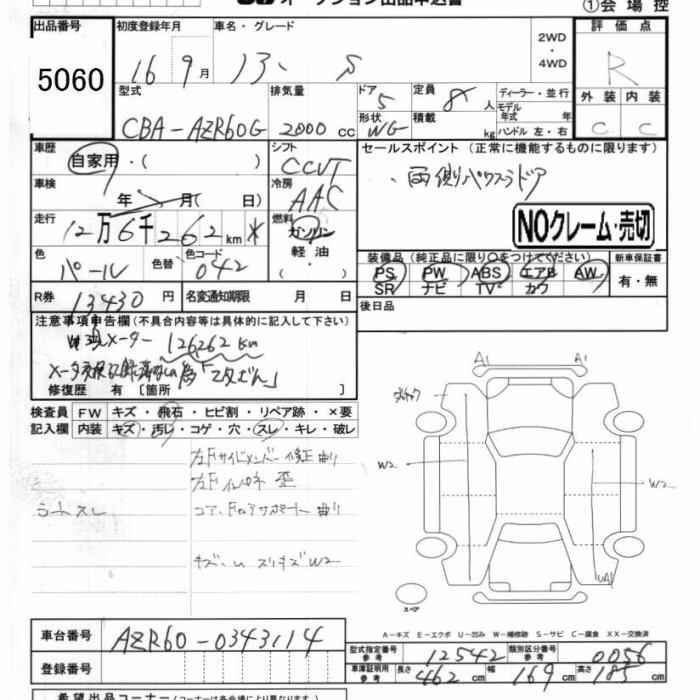 オークション出品申込書 ①会場控
出品番号 初度登録年月 車名・グレード 評価点
5060 16 9月 アイシス 2WD・4WD R
型式 排気量 ドア 5 定員 8人 ディーラー・並行 外装 内装
CBA-AZR60G 2000cc 形状 WG 積載 kg モデル年式 年 ハンドル 左・右 C C
車歴 自家用・( ) シフト CCVT セールスポイント (正常に機能するものに限ります)
車検 年 月( 日) 冷房 AAC ・両側パワスラドア
走行 12万6千262km* 燃料 ガソリン NOクレーム・売切
色 パール 色替 色コード 042 軽油 ・
装備品(純正品に限り○をつけてください) 新車保証書
PS PW ABS エアB AW 有・無
SR ナビ TV カワ
R券 13430円 名変通知期限 月 日 後日品
注意事項申告欄(不具合内容等は具体的に記入して下さい)
現メーター 126262km
修復歴 有 [箇所 ]
検査員 FW キズ・飛石・ヒビ割・リペア跡・×要
記入欄 内装 キズ・汚レ・コゲ・穴・スレ・キレ・破レ
左Fサイドメンバー修正曲り
左Fインパネ歪
コアサポート曲り
シートスレ
W2
A1 A1
W2 W2
UA1
スペア
A-キズ E-エクボ U-凹み W-補修跡 S-サビ C-腐食 XX-交換済
車台番号 AZR60-0343114
型式指定番号 参考 12542 類別区分番号 参考 0056
登録番号 車庫証明用 参考 長さ 462cm 幅 169cm 高さ 185cm
希望出品コーナー(コーナーは各会場により